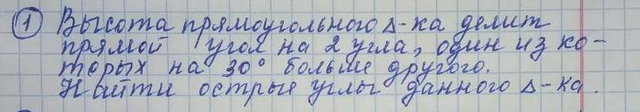 ① Высота прямоугольного Δ-ка делит
прямой угол на 2 угла, один из ко-
торых на 30° больше другого.
Найти острые углы данного Δ-ка.